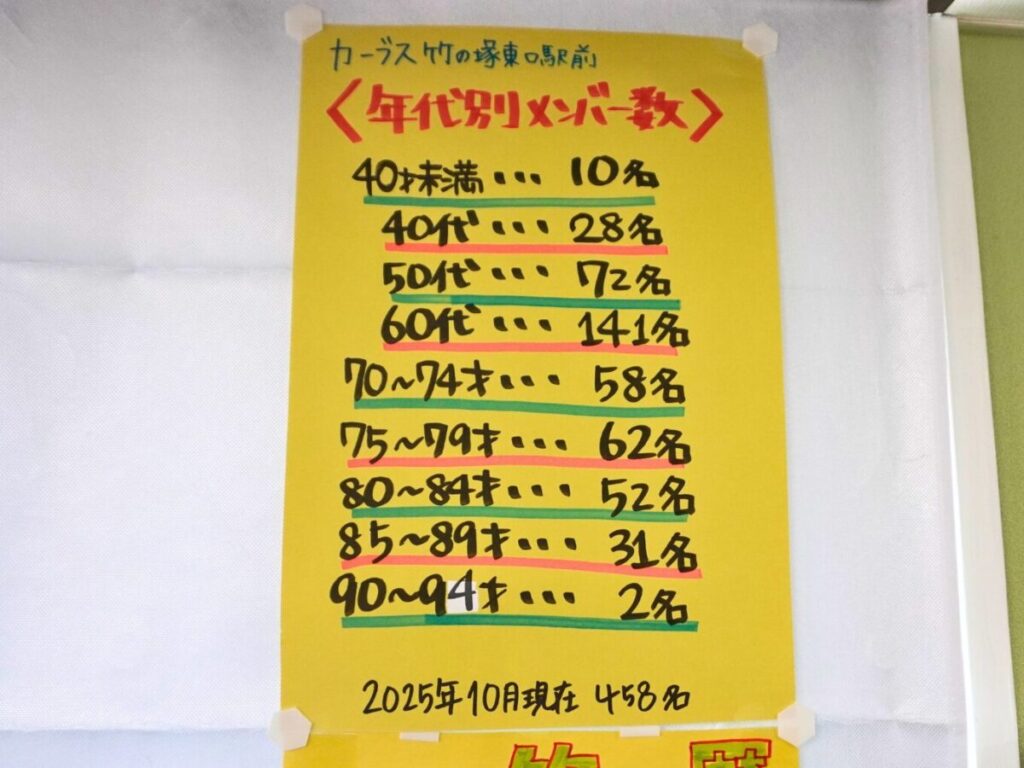 カーブス竹の塚東口駅前
〈年代別メンバー数〉
40才未満・・・10名
40代・・・28名
50代・・・72名
60代・・・141名
70〜74才・・・58名
75〜79才・・・62名
80〜84才・・・52名
85〜89才・・・31名
90〜94才・・・2名
2025年10月現在 458名